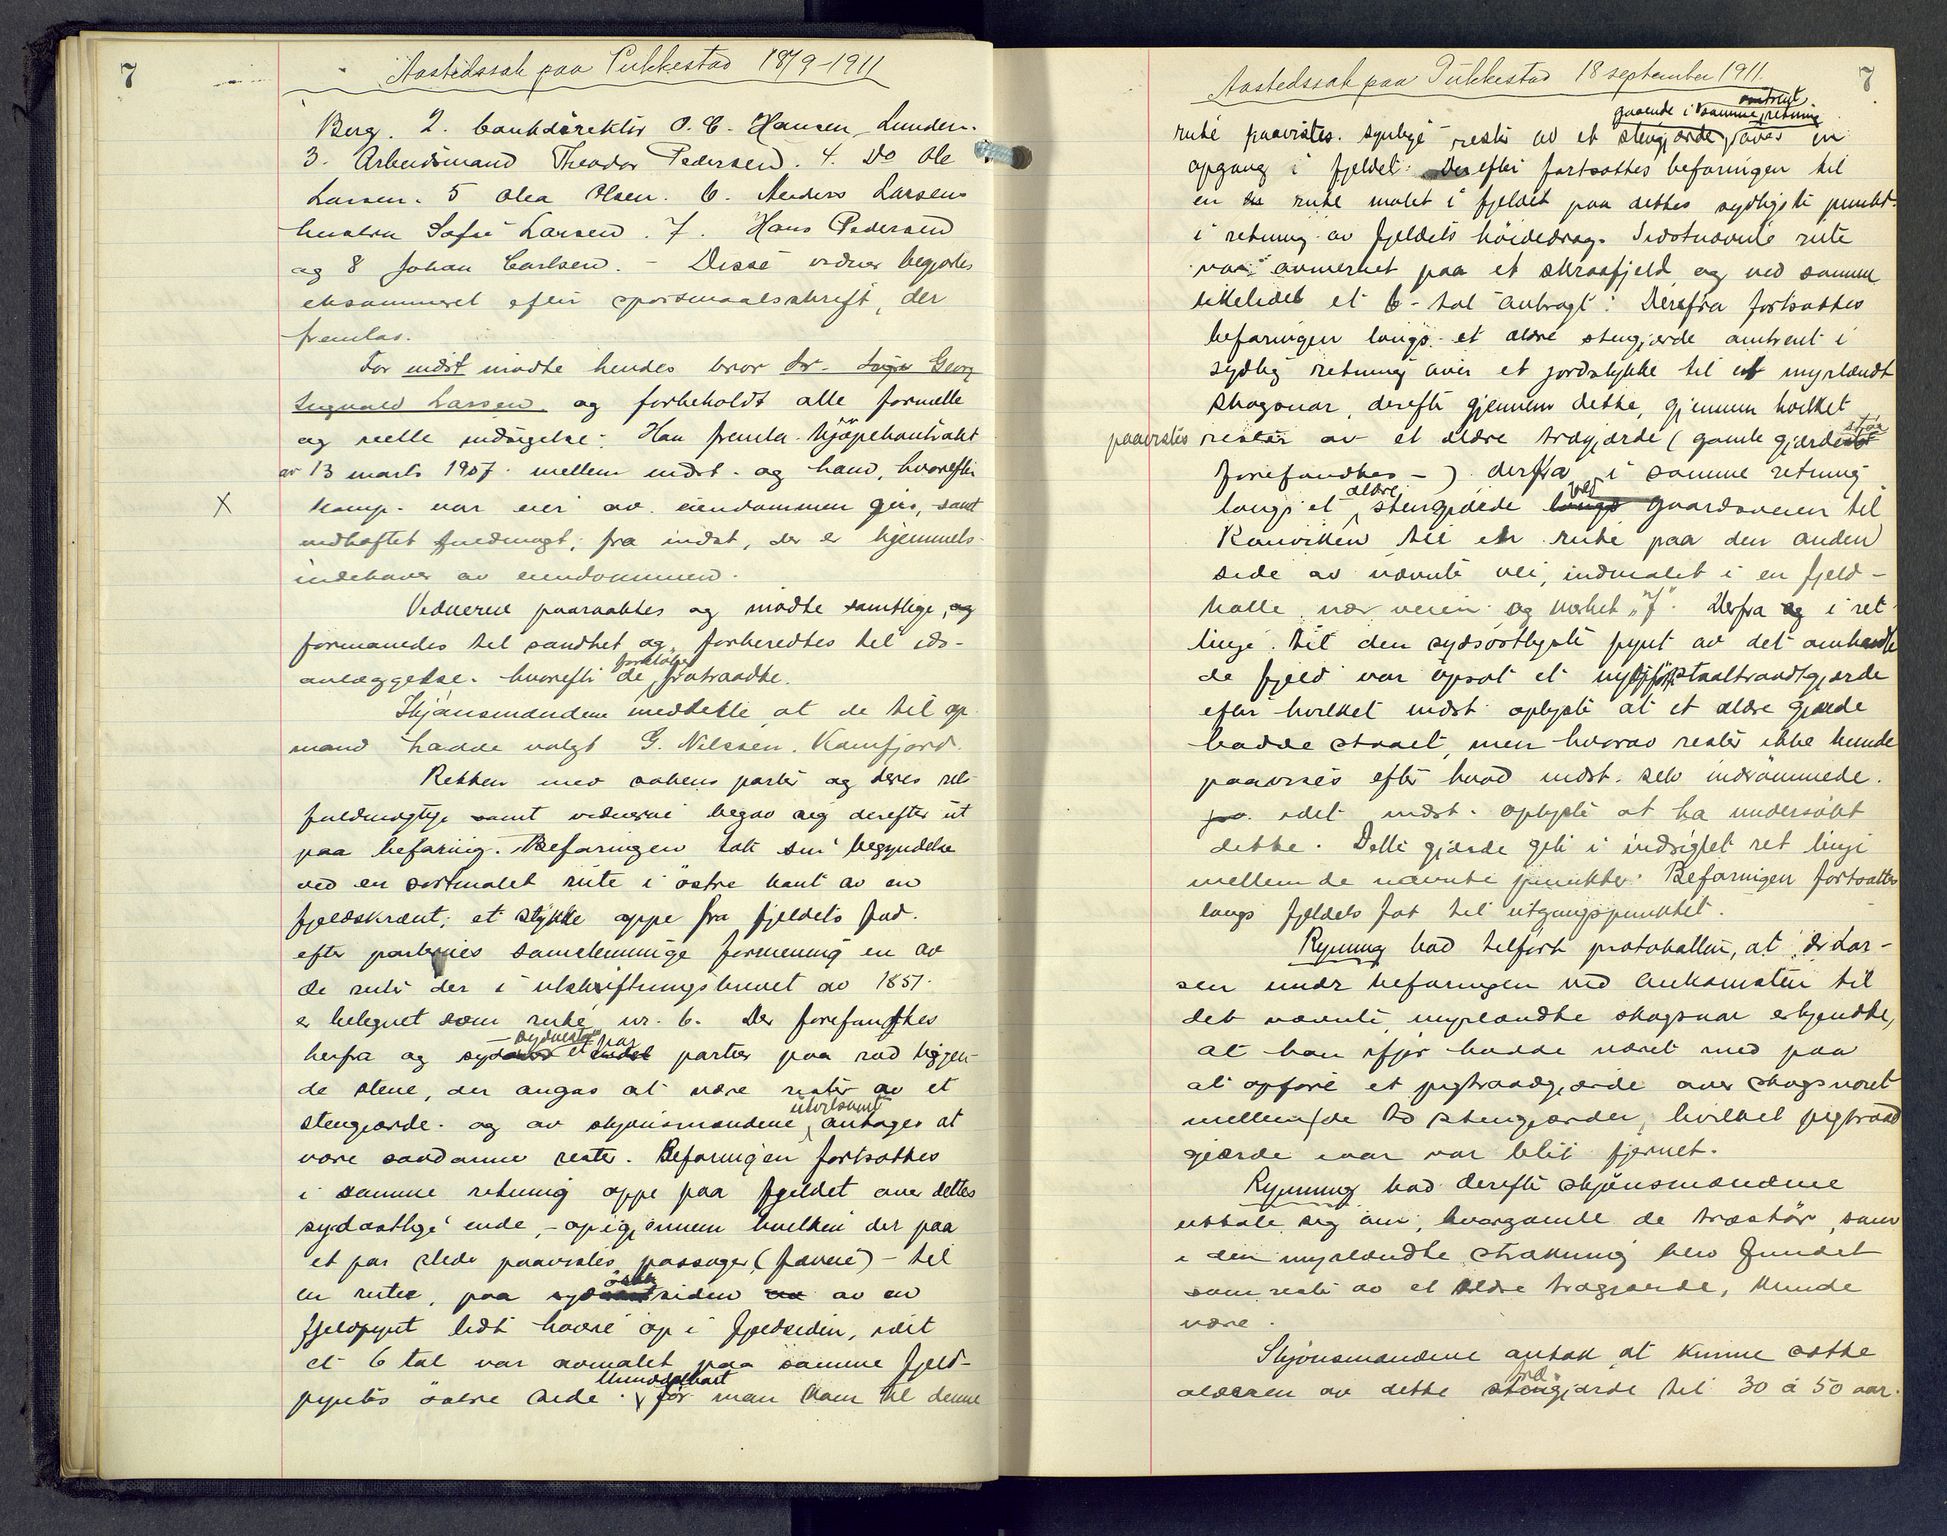 7
Aastedssak paa Pukkestad 18/9-1911
Berg. 2. bankdirektör O. C. Hansen, Lunden.
3. Arbeidsmand Theodor Pedersen. 4. Do Ole
Larsen. 5 Olea Olsen. 6. Anders Larsens
hustru Sofie Larsen. 7. Hans Pedersen
og 8 Johan Carlsen. - Disse vidner begjærtes
eksamineret efter spörsmaalsskrift, der
fremlas.
For indst mödte hendes bror dr. Georg
Sigvald Larsen og forbeholdt alle formelle
og reelle indsigelser. Han fremla kjöpekontrakt
av 13 marts 1907 mellem indst. og ham, hvorefter
komp. var eier av eiendommen geis, samt
X
vedheftet fuldmagt, fra indst, der er hjemmels-
indehaver av eiendommen.
Vidnerne paaraaktes og mödte samtlige, og
formanedes til sandhet og forberedtes til eds-
avlæggelse. hvorefter de forelöbig fratraadte.
Skjönsmændene meddelte at de til op
mand hadde valgt G. Nilssen, Kamfjord.
Retten med sakens parter og deres ret-
fuldmægtige samt vidnerne begav sig derefter ut
paa befaring. Befaringen tok sin begyndelse
ved en sortmalet rute i östre kant av en
fjeldskrænt, et stykke oppe fra fjeldets fod.
efter parternes samstemmige formening en av
de ruter der i utskiftningsbrevet av 1851
er betegnet som rute nr. 6. Der forefandtes
herfra og sydvestover et par partier paa rad liggen-
de stene, der angas at være rester av et
stengjærde og av skjönsmændene utvilsomt antages at
være saadanne rester. Befaringen fortsattes
i samme retning oppe paa fjeldet over dettes
sydostlige ende, - opigjennem hvilken der paa
et par steder paavistes passager (farveie) - til
en rute, paa sydöstsiden av en
fjeldpynt lidt höiere op i fjeldsiden, idet
et 6 tal var avmalet paa samme fjeld-
pynts östre side. Umiddelbart för man kom til denne
Aastedssak paa Pukkestad 18 september 1911.
7
gaaende i samme omtrent retning
rute paavistes synlige rester av et stengjærde, over en
opgang i fjeldet. Derefter fortsattes befaringen til
en rute malet i fjeldet paa dettes sydligste punkt
i retning av fjeldets höidedrag. Sidstnævnte rute
var avmerket paa et skraafjeld og ved samme
likeledes et 6-tal anbragt. Derefra fortsattes
befaringen langs et ældre stengjærde omtrent i
sydlig retning over et jordstykke til et myrlændt
skogsnar, derefter gjennem dette, gjennem hvilket
paavistes rester av et ældre trægjærde (gamle gjærdestör
forefandtes -) derfra i samme retning
langs et ældre stengjærde ved gaardsveien til
Kamviken til en rute paa den anden
side av nævnte vei, indmalet i en fjeld-
kolle nær veien og merket "7". Derfra og i ret
linje til den sydsöstligste pynt av det omhandle
de fjeld var opsat et nyt staaltraadsgjærde
efter hvilket indst. oplyste at et ældre gjærde
hadde staaet, men hvorav rester ikke kunde
paavises efter hvad indst. selv indrömmede.
idet indst. oplyste at ha undersökt
dette. Dette gjærde gik i indsigtet ret linje
mellem de nævnte punkter. Befaringen fortsattes
langs fjeldets fot til utgangspunktet.
Rynning bad tilfört protokollen, at dr Lar-
sen under befaringen ved ankomsten til
det nævnte myrlændte skogsnar erkjendte,
at han ifjor hadde været med paa
at opföre et pigtraadgjærde over skogsnaret
mellem de to stengjærder, hvilket pigtraad
gjærde iaar var blit fjernet.
Rynning bad derefter skjönsmændene
uttale sig om, hvorgamle de træstör, som
i den myrlændte strækning blev fundet
som rester av et ældre trægjærde, kunde
være.
Skjönsmændene antok at kunne sætte
alderen av dette trægjærde til 30 á 50 aar.